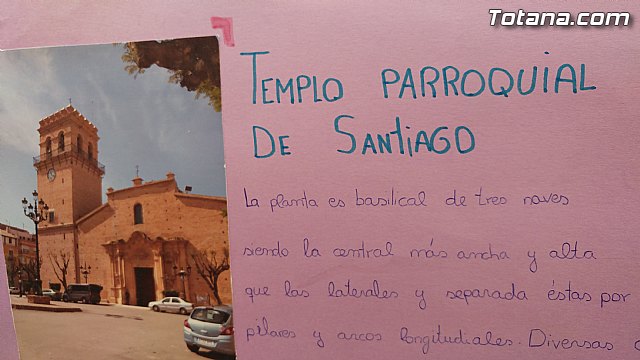 Totana.com
TEMPLO PARROQUIAL
DE SANTIAGO
La planta es basilical de tres naves
siendo la central más ancha y alta
que las laterales y separada éstas por
pilares y arcos longitudiales. Diversas